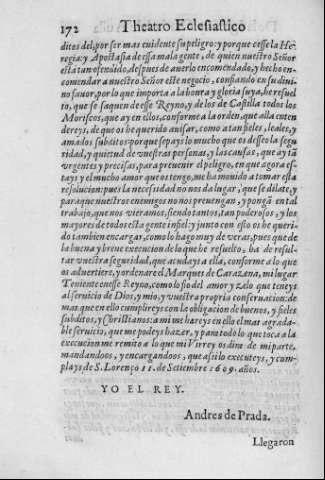 172 Theatro Eclesiastico
ditos del, por ser mas euidente su peligro: y porque cesse la He-
regia: y Apostasia de essa mala gente, de quien nuestro Señor
està tan ofendido, despues de auerlo encomendado, y hecho en-
comendar a nuestro Señor este negocio, confiando en su diui-
no fauor, por lo que importa a la honra y gloria suya, he resuel
to, que se saquen de esse Reyno, y de los de Castilla todos los
Moriscos, que ay en ellos, conforme a la orden, que alla enten
dereys, de que os he querido auisar, como a tan fieles, leales, y
amados subditos: porque sepays lo mucho que os desseo la segu
ridad, y quietud de vuestras personas, y las causas, que ay tã
vrgentes y precisas, para preuenir el peligro, en que agora es-
tays y el mucho amor que os tengo, me ha mouido a tomar esta
resolucion: pues la necessidad no nos da lugar, que se dilate, y
para que nuestros enemigos no nos preuengan, y pongã en tal
trabajo, que nos vieramos, siendo tantos, tan poderosos, y los
mayores de todos esta gente infiel: y junto con esto os he queri-
do tambien encargar, como lo hago muy de veras, pues que de
la buena y breue execucion de lo que he resuelto, ha de resul-
tar vuestra seguridad, que acudays a ella, conforme a lo que
os aduertiere, y ordenare el Marques de Carazena, mi lugar
Teniente en esse Reyno, como lo fio del amor y zelo que teneys
al seruicio de Dios, y mio, y vuestra propria conseruacion: de
mas que en ello cumplireys con la obligacion de buenos, y fieles
subditos, y Christianos: a mi me hareys en ello el mas agrada-
ble seruicio, que me podeys hazer, y para todo lo que toca a la
execucion me remito a lo que mi Virrey os dira de mi parte,
mandandoos, y encargandoos, que assi lo executeys, y cum-
plays de S. Lorenço 11. de Setiembre 1609. años.
YO EL REY.
Andres de Prada.
Llegaron